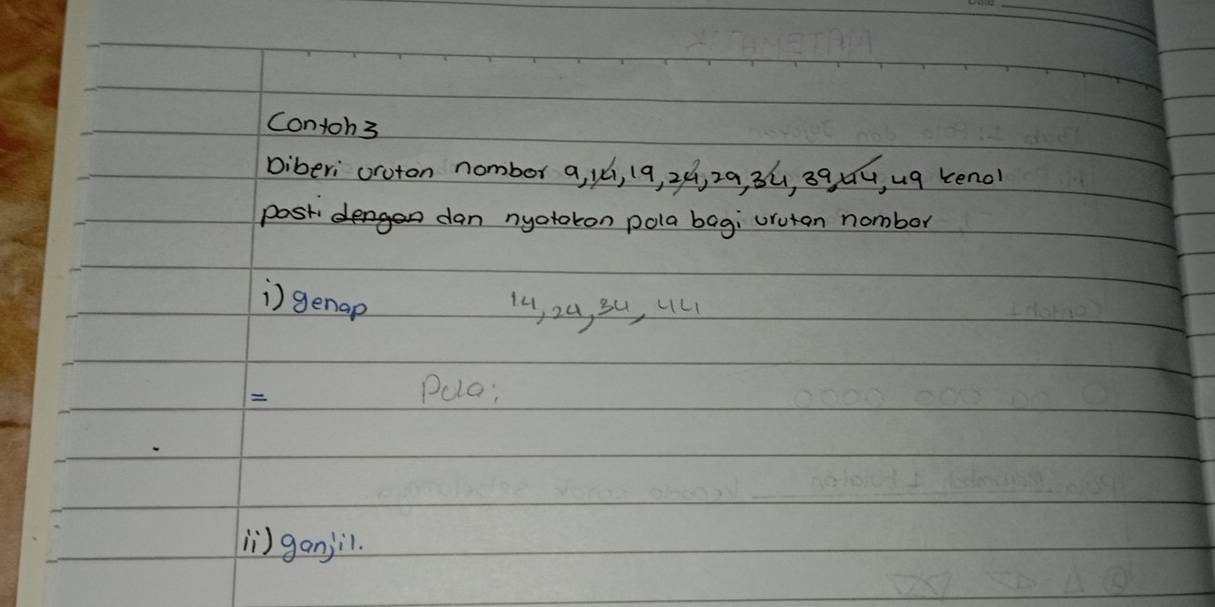 Contoh 3
Diberi urutan nombor 9, 14, 19, 24, 29, 34, 39, 44, 49 kenal
pasti dengan dan nyatakan pola bagi urutan nombor
i) genap 14, 24, 34, 44
= Pola:
ii) ganjil.